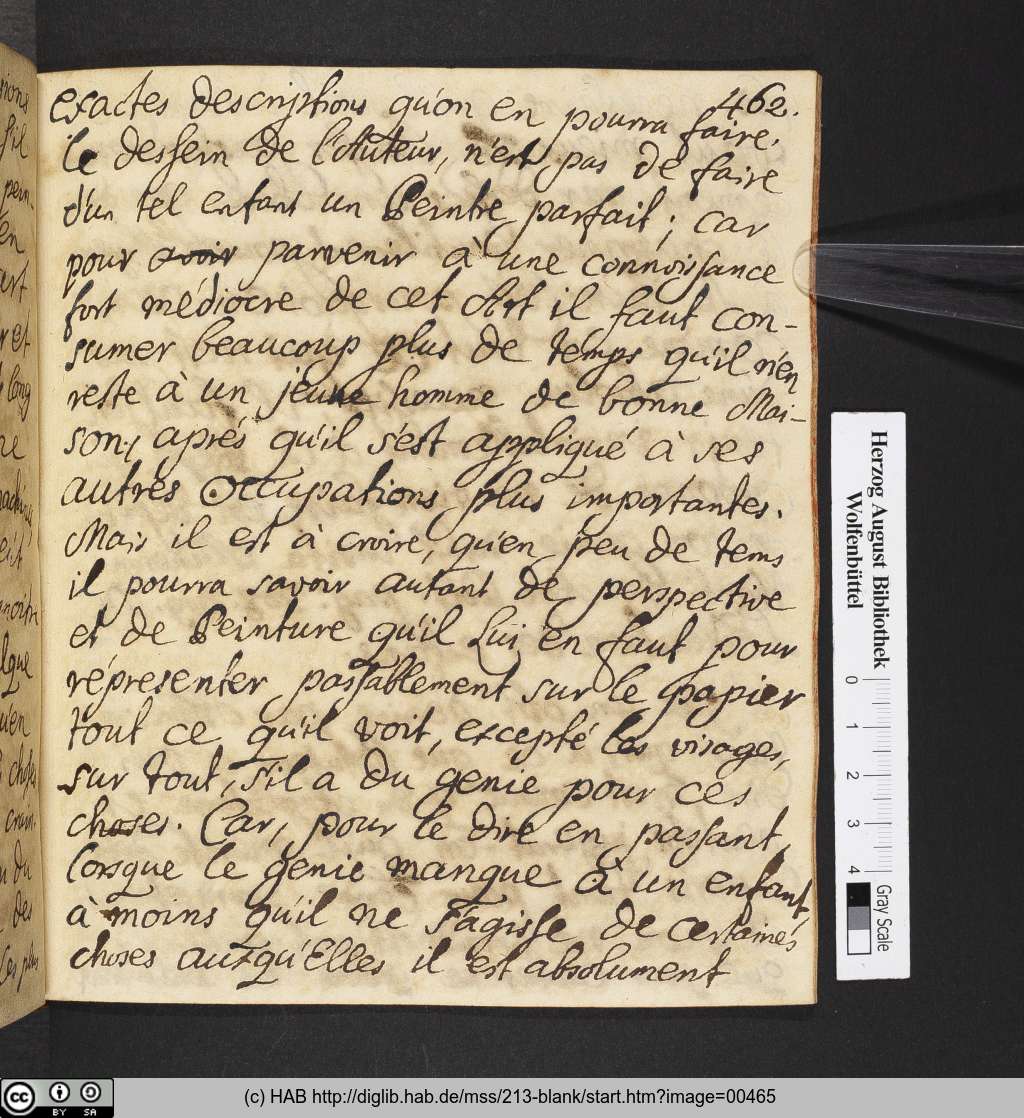 462.
exactes descriptions qu'on en pourra faire.
le dessein de l'Auteur, n'est pas de faire
d'un tel enfant un Peintre parfait; car
pour avoir parvenir à une connoissance
fort médiocre de cet Art il faut con-
sumer beaucoup plus de temps qu'il n'en
reste à un jeune homme de bonne Mai-
son, aprés qu'il s'est appliqué à ses
autres Occupations plus importantes.
Mais il est à croire, qu'en peu de tems
il pourra savoir autant de perspective
et de Peinture qu'il Lui en faut pour
répresenter passablement sur le papier
tout ce qu'il voit, excepté les visages,
sur tout, s'il a du genie pour ces
choses. Car, pour le dire en passant,
lorsque le genie manque à un enfant,
à moins qu'il ne s'agisse de certaines
choses auxqu'Elles il est absolument
rions
s'il
pein-
en
ret
long
ne
qu'en
du
des
les plus
Herzog August Bibliothek
Wolfenbüttel
0 1 2 3 4
Gray Scale
cc BY SA
(c) HAB http://diglib.hab.de/mss/213-blank/start.htm?image=00465